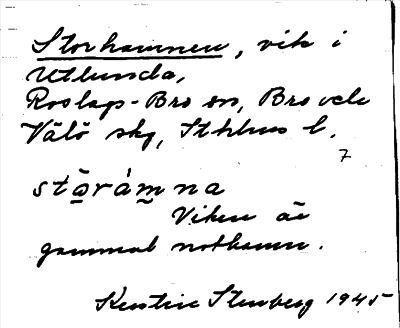 Storhamnen, vik i
Utlunda,
Roslags-Bro sn, Bro och
Vätö skg, Sthlms l.
7
stǡrám na
Viken är
gammal nothamn.
Kerstin Stenberg 1945